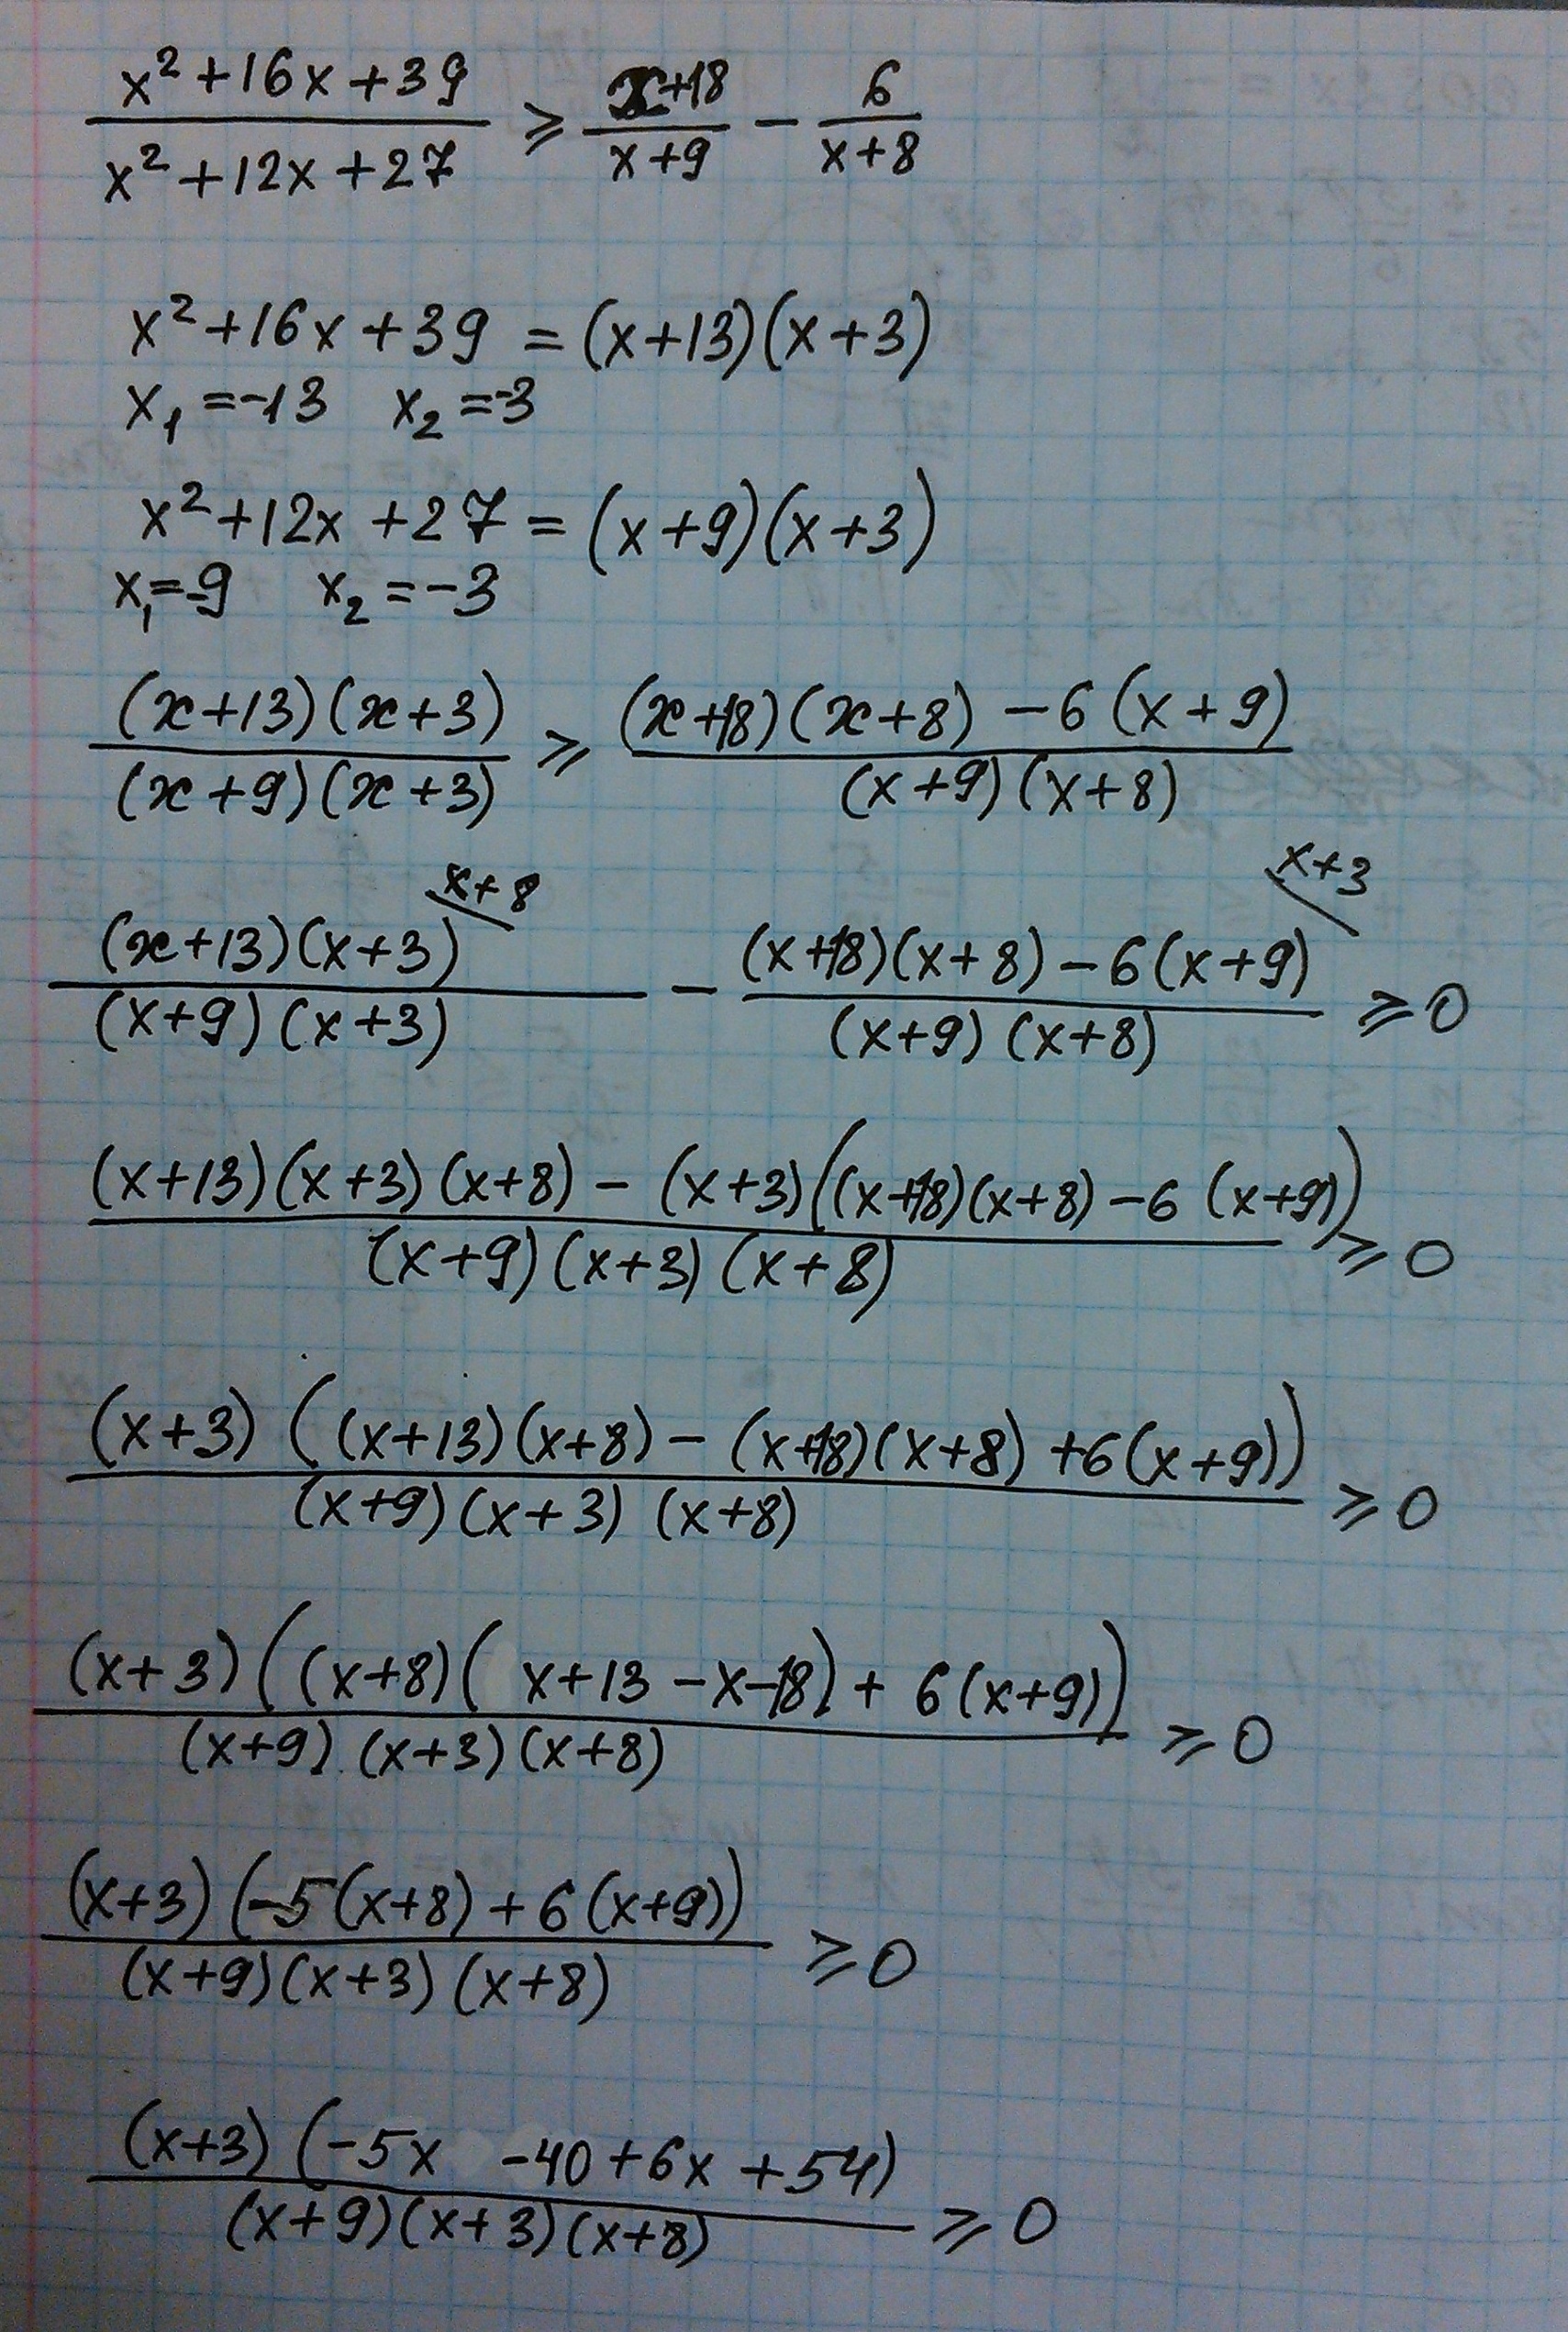 (x²+16x+39)/(x²+12x+27) ⩾ (x+18)/(x+9) − 6/(x+8)
x²+16x+39 = (x+13)(x+3)
x₁=-13 x₂=-3
x²+12x+27 = (x+9)(x+3)
x₁=-9 x₂=-3
((x+13)(x+3))/((x+9)(x+3)) ⩾ ((x+18)(x+8)−6(x+9))/((x+9)(x+8))
x+8 x+3
((x+13)(x+3))/((x+9)(x+3)) − ((x+18)(x+8)−6(x+9))/((x+9)(x+8)) ⩾ 0
((x+13)(x+3)(x+8)−(x+3)((x+18)(x+8)−6(x+9)))/((x+9)(x+3)(x+8)) ⩾ 0
((x+3)((x+13)(x+8)−(x+18)(x+8)+6(x+9)))/((x+9)(x+3)(x+8)) ⩾ 0
((x+3)((x+8)(x+13−x−18)+6(x+9)))/((x+9)(x+3)(x+8)) ⩾ 0
((x+3)(−5(x+8)+6(x+9)))/((x+9)(x+3)(x+8)) ⩾ 0
((x+3)(−5x −40+6x+54))/((x+9)(x+3)(x+8)) ⩾ 0